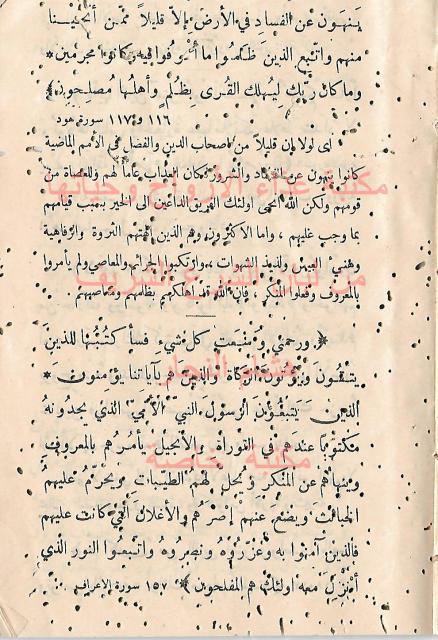 يَنهَونَ عن الفسادِ في الأرض إلاّ قليلاً ممّن أنجَيْنـا
منهم واتـَّبعَ الذين ظـَلموا ما أُترفوا فيه وكانوا مجرمين *
وما كان ربُّك ليُهلك القـُرى بِظـُلمٍ وأهلـُها مُصلِحون ﴾
١١٦ و ١١٧ سورة هود
اى لولا إن قليلاً من أصحاب الدين والفضل في الأمم الماضية
كانوا ينهون عن الفساد والشرور لكان العذاب عاماً لهم وللعصاة من
قومهم ولكن الله أنجى اولئك الفريق الداعين الى الخير بسبب قيامهم
بما وجب عليهم ، واما الأكثرون وهم الذين ألهتهم الثروة والرفاهية
وهنيء العيش ولذيذ الشهوات ، وارتكبوا الجرائم والمعاصي ولم يأمروا
بالمعروف وفعلوا المنكر ، فإن الله قد اهلكهم بظلمهم ومعاصيهم .
﴿ ورحمتي وَسِعَت كلّ شيء فسأكتـُبُها للذين
يتـَّقون ويُؤتون الزكاة والذين هم بآياتنا يؤمنون *
الذين يَتـَّبعُون الرسولَ النبي الأُمّي الذي يجدونهُ
مكتوبًا عندَهم في التوراة والأنجيل يأمـُرُهم بالمعروفِ
وينهاهم عن المنكر وُيحل لهُم الطيّبات ويحرّم عليهمُ
الخبائث ويضعُ عنهم إصْرَهُم والأغلالَ التي كانت عليهم
فالذين آمنوا به وعزّروُهُ ونصرُوهُ واتـَّبعـُوا النور الذي
أُنـْزِلَ معه اولئك هم المفلحون ﴾ ١٥٧ سورة الاعراف
مكتبة غذاء الأرواح وحياتها
من لباب الشرع الشريف
هشام النجار
مكتبة خاصة